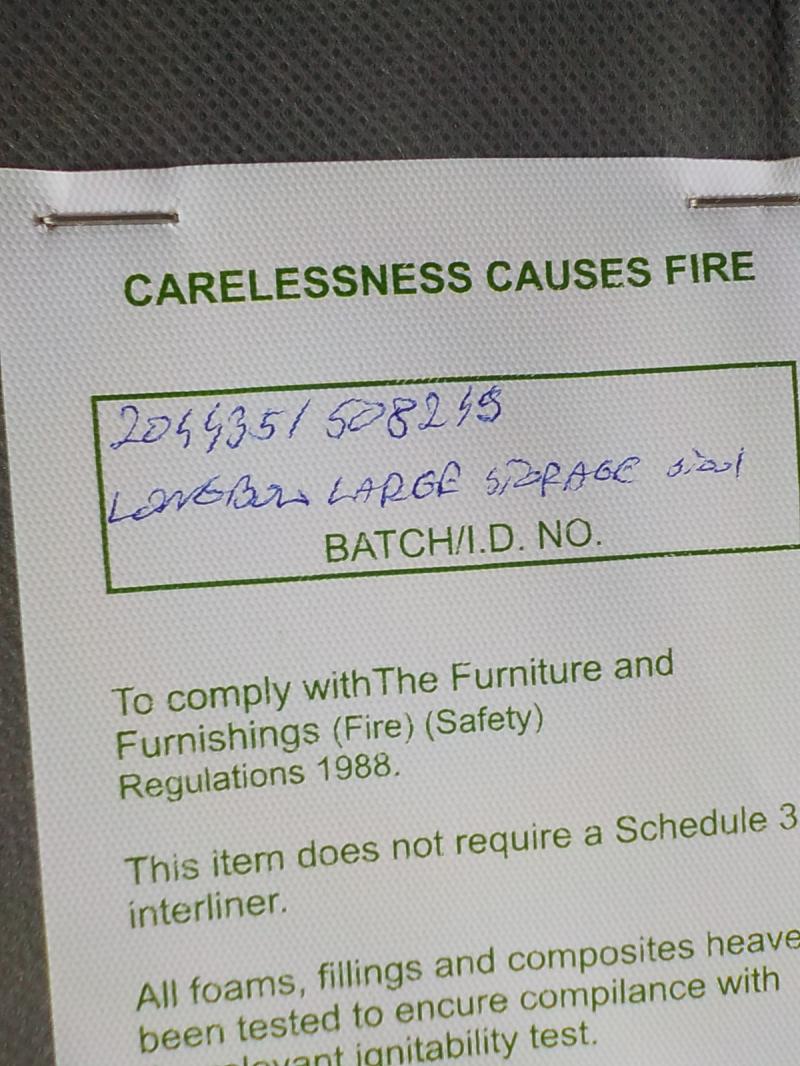 CARELESSNESS CAUSES FIRE
2044351 508249
LONGBOW LARGE STORAGE stool
BATCH/I.D. NO.
To comply withThe Furniture and
Furnishings (Fire) (Safety)
Regulations 1988.
This item does not require a Schedule 3
interliner.
All foams, fillings and composites heave
been tested to encure compilance with
ignitability test.